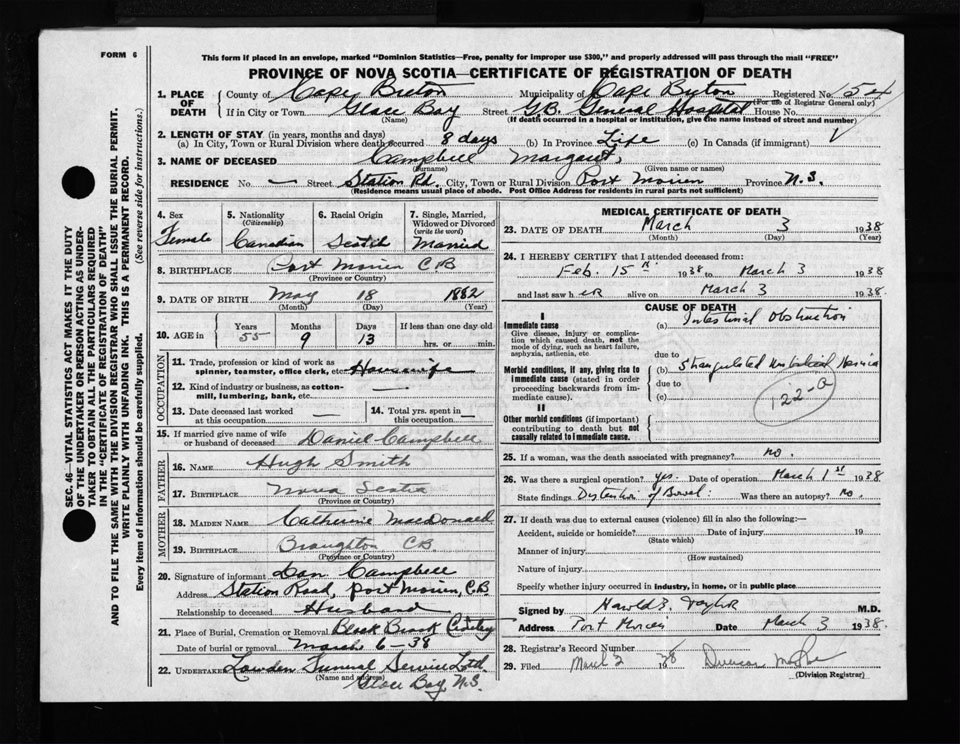 FORM 6
This form if placed in an envelope, marked "Dominion Statistics—Free, penalty for improper use $300," and properly addressed will pass through the mail "FREE"
PROVINCE OF NOVA SCOTIA—CERTIFICATE OF REGISTRATION OF DEATH
1. PLACE OF DEATH County of Cape Breton Municipality of Cape Breton Registered No. 154
(For use of Registrar General only)
If in City or Town Glace Bay Street G.B. General Hospital House No.
(Name) (If death occurred in a hospital or institution, give the name instead of street and number)
2. LENGTH OF STAY (in years, months and days)
(a) In City, Town or Rural Division where death occurred 8 days (b) In Province Life (c) In Canada (if immigrant)
3. NAME OF DECEASED Campbell Margaret,
(Surname) (Given name or names)
RESIDENCE No. — Street Station Rd. City, Town or Rural Division Port Morien Province N.S.
(Residence means usual place of abode. Post Office Address for residents in rural parts not sufficient)
4. Sex Female
5. Nationality (Citizenship) Canadian
6. Racial Origin Scotch
7. Single, Married, Widowed or Divorced (write the word) Married
8. BIRTHPLACE Port Morien C.B
(Province or Country)
9. DATE OF BIRTH May 18 1882
(Month) (Day) (Year)
10. AGE in Years 55 Months 9 Days 13 If less than one day old hrs. or min.
OCCUPATION
11. Trade, profession or kind of work as spinner, teamster, office clerk, etc. Housewife
12. Kind of industry or business, as cotton-mill, lumbering, bank, etc. —
13. Date deceased last worked at this occupation —
14. Total yrs. spent in this occupation —
15. If married give name of wife or husband of deceased Daniel Campbell
FATHER
16. NAME Hugh Smith
17. BIRTHPLACE Nova Scotia
(Province or Country)
MOTHER
18. MAIDEN NAME Catherine MacDonald
19. BIRTHPLACE Broughton C.B
(Province or Country)
20. Signature of informant Dan Campbell
Address Station Road, Port Morien, C.B.
Relationship to deceased Husband
21. Place of Burial, Cremation or Removal Black Brook
Date of burial or removal March 6-38
22. UNDERTAKER Lowden Funeral Service Ltd.
(Name and address)
Glace Bay, N.S.
MEDICAL CERTIFICATE OF DEATH
23. DATE OF DEATH March 3 1938
(Month) (Day) (Year)
24. I HEREBY CERTIFY that I attended deceased from:
Feb. 15 th 1938 to March 3 1938
and last saw her alive on March 3 1938.
CAUSE OF DEATH
I
Immediate cause (a) Intestinal Obstruction
Give disease, injury or complication which caused death, not the mode of dying, such as heart failure, asphyxia, asthenia, etc
due to
Morbid conditions, if any, giving rise to immediate cause (stated in order proceeding backwards from immediate cause).
(b) Strangulated Umbilical Hernia
due to
(c)
122-a
II
Other morbid conditions (if important) contributing to death but not causally related to immediate cause.
25. If a woman, was the death associated with pregnancy? no.
26. Was there a surgical operation? yes. Date of operation March 1st 1938
State findings Distention of Bowel. Was there an autopsy? No.
27. If death was due to external causes (violence) fill in also the following:—
Accident, suicide or homicide? Date of injury 19
(State which)
Manner of injury
(How sustained)
Nature of injury
Specify whether injury occurred in industry, in home, or in public place
Signed by Harold Taylor M.D.
Address Port Morien Date March 3 1938.
28. Registrar's Record Number
29. Filed March 1938 Duncan
(Division Registrar)
SEC. 46—VITAL STATISTICS ACT MAKES IT THE DUTY
OF THE UNDERTAKER OR PERSON ACTING AS UNDER-
TAKER TO OBTAIN ALL THE PARTICULARS REQUIRED
IN THE "CERTIFICATE OF REGISTRATION OF DEATH"
AND TO FILE THE SAME WITH THE DIVISION REGISTRAR WHO SHALL ISSUE THE BURIAL PERMIT.
WRITE PLAINLY WITH UNFADING INK. THIS IS A PERMANENT RECORD.
Every item of information should be carefully supplied. (See reverse side for instructions.)